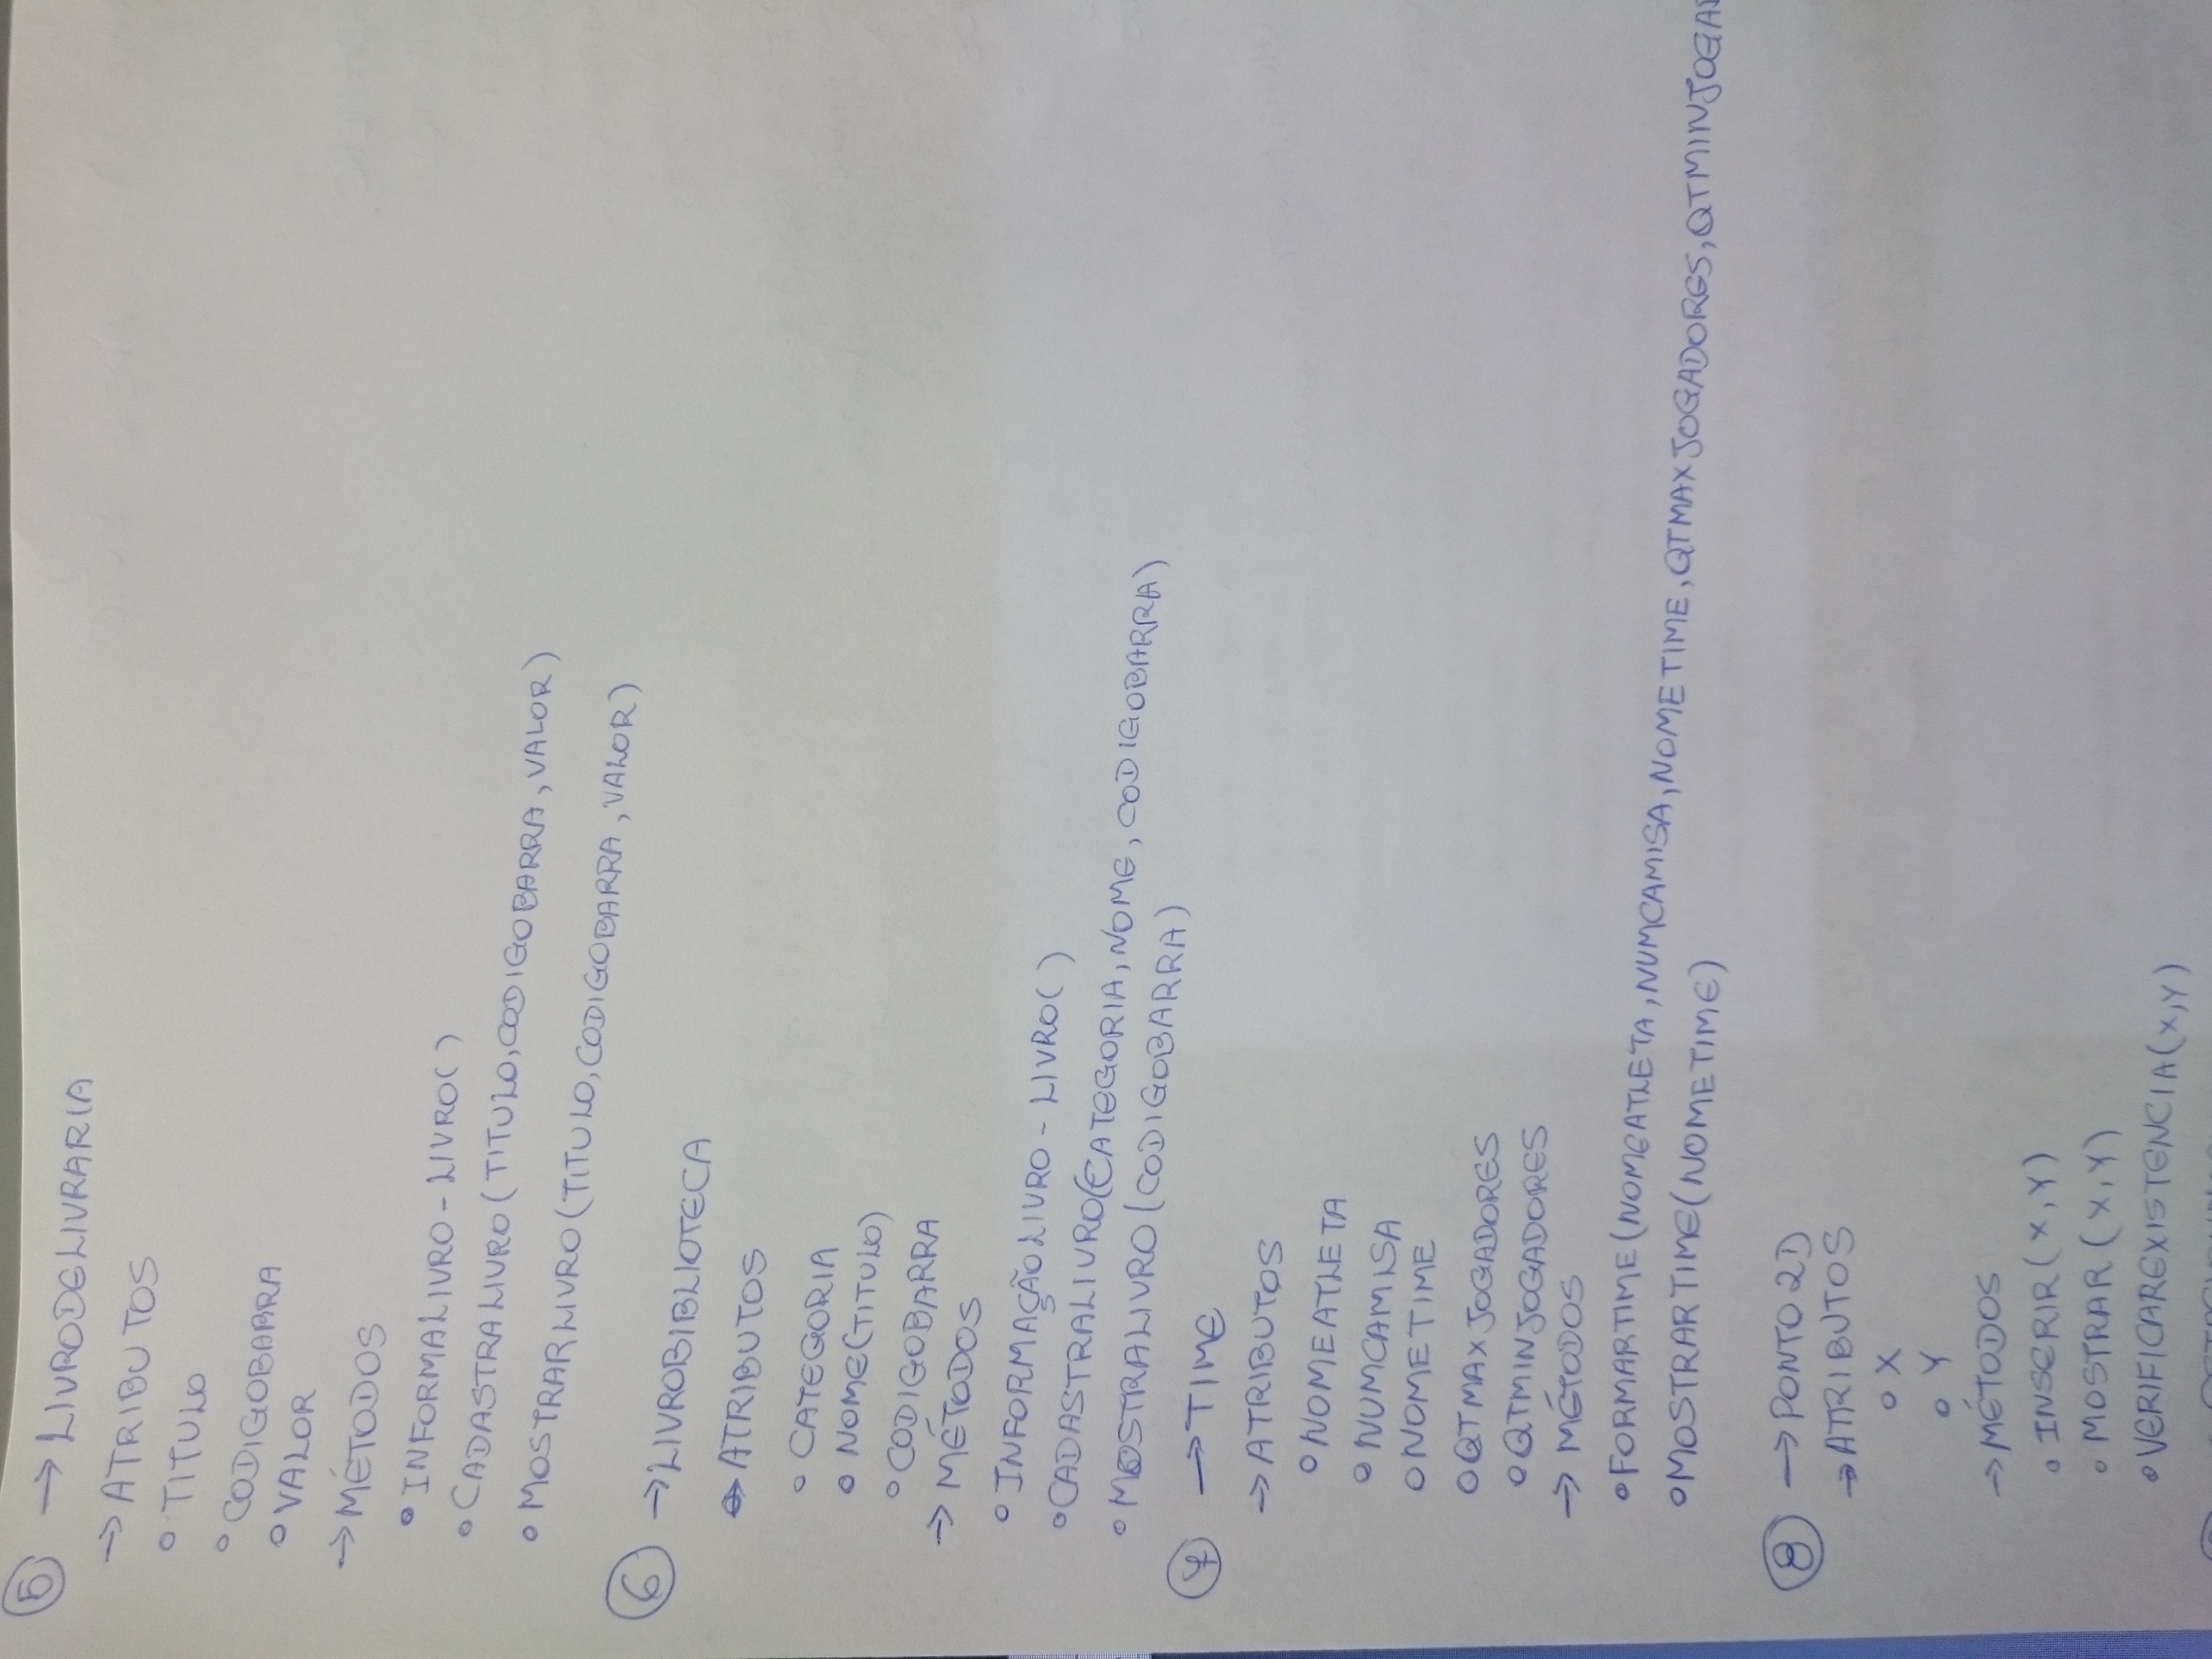 5 → LIVRODELIVRARIA
→ ATRIBUTOS
○ TITULO
○ CODIGOBARRA
○ VALOR
→ MÉTODOS
○ INFORMALIVRO - LIVRO( )
○ CADASTRALIVRO (TITULO, CODIGOBARRA, VALOR)
○ MOSTRARLIVRO (TITULO, CODIGOBARRA, VALOR)
6 → LIVROBIBLIOTECA
→ ATRIBUTOS
○ CATEGORIA
○ NOME(TITULO)
○ CODIGOBARRA
→ MÉTODOS
○ INFORMAÇÃOLIVRO - LIVRO( )
○ CADASTRALIVRO(CATEGORIA, NOME, CODIGOBARRA)
○ MOSTRALIVRO (CODIGOBARRA)
7 → TIME
→ ATRIBUTOS
○ NOMEATLETA
○ NUMCAMISA
○ NOMETIME
○ QTMAXJOGADORES
○ QTMINJOGADORES
→ MÉTODOS
○ FORMARTIME (NOMEATLETA, NUMCAMISA, NOMETIME, QTMAXJOGADORES, QTMINJOGA
○ MOSTRARTIME (NOMETIME)
8 → PONTO2D
→ ATRIBUTOS
○ X
○ Y
→ MÉTODOS
○ INSERIR (X, Y)
○ MOSTRAR (X, Y)
○ VERIFICAREXISTENCIA(X,Y)